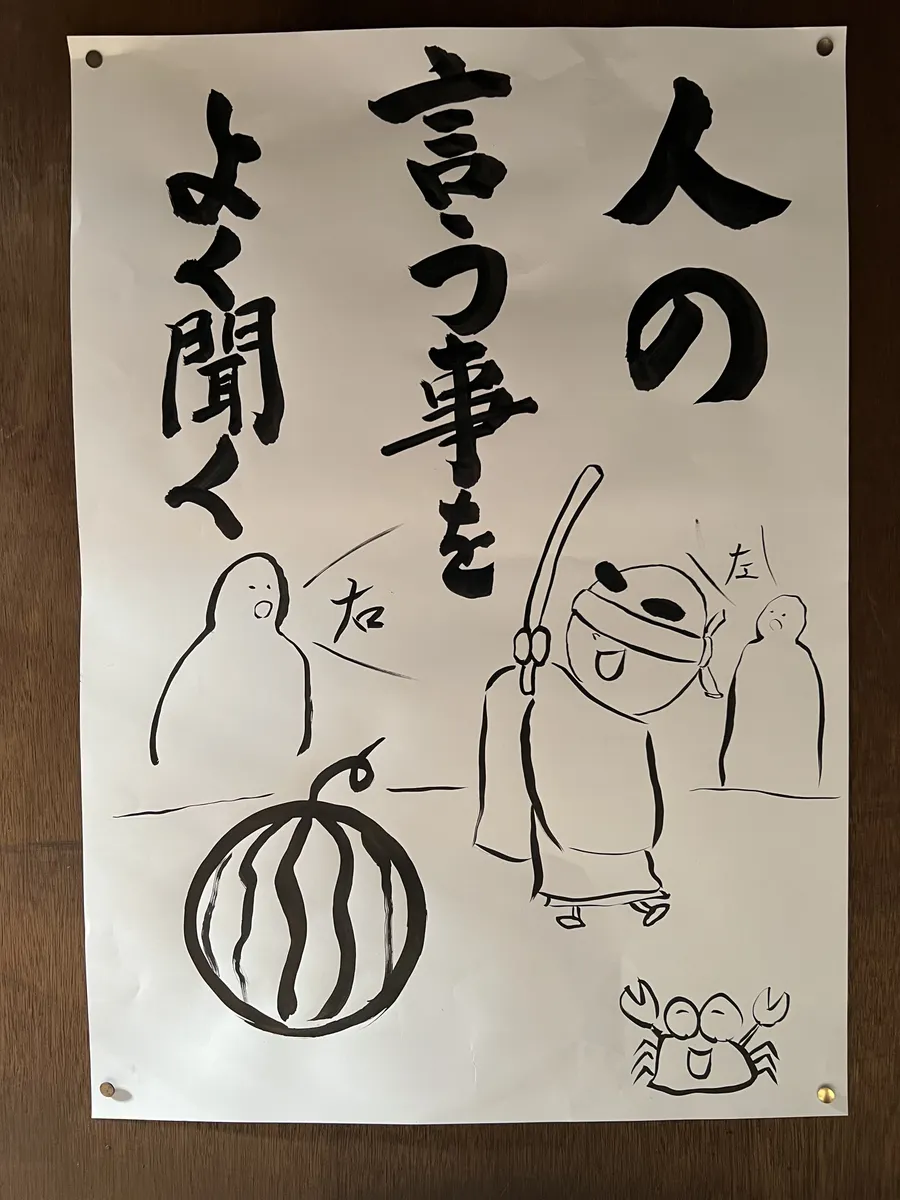 人の
言う事を
よく聞く
左
右